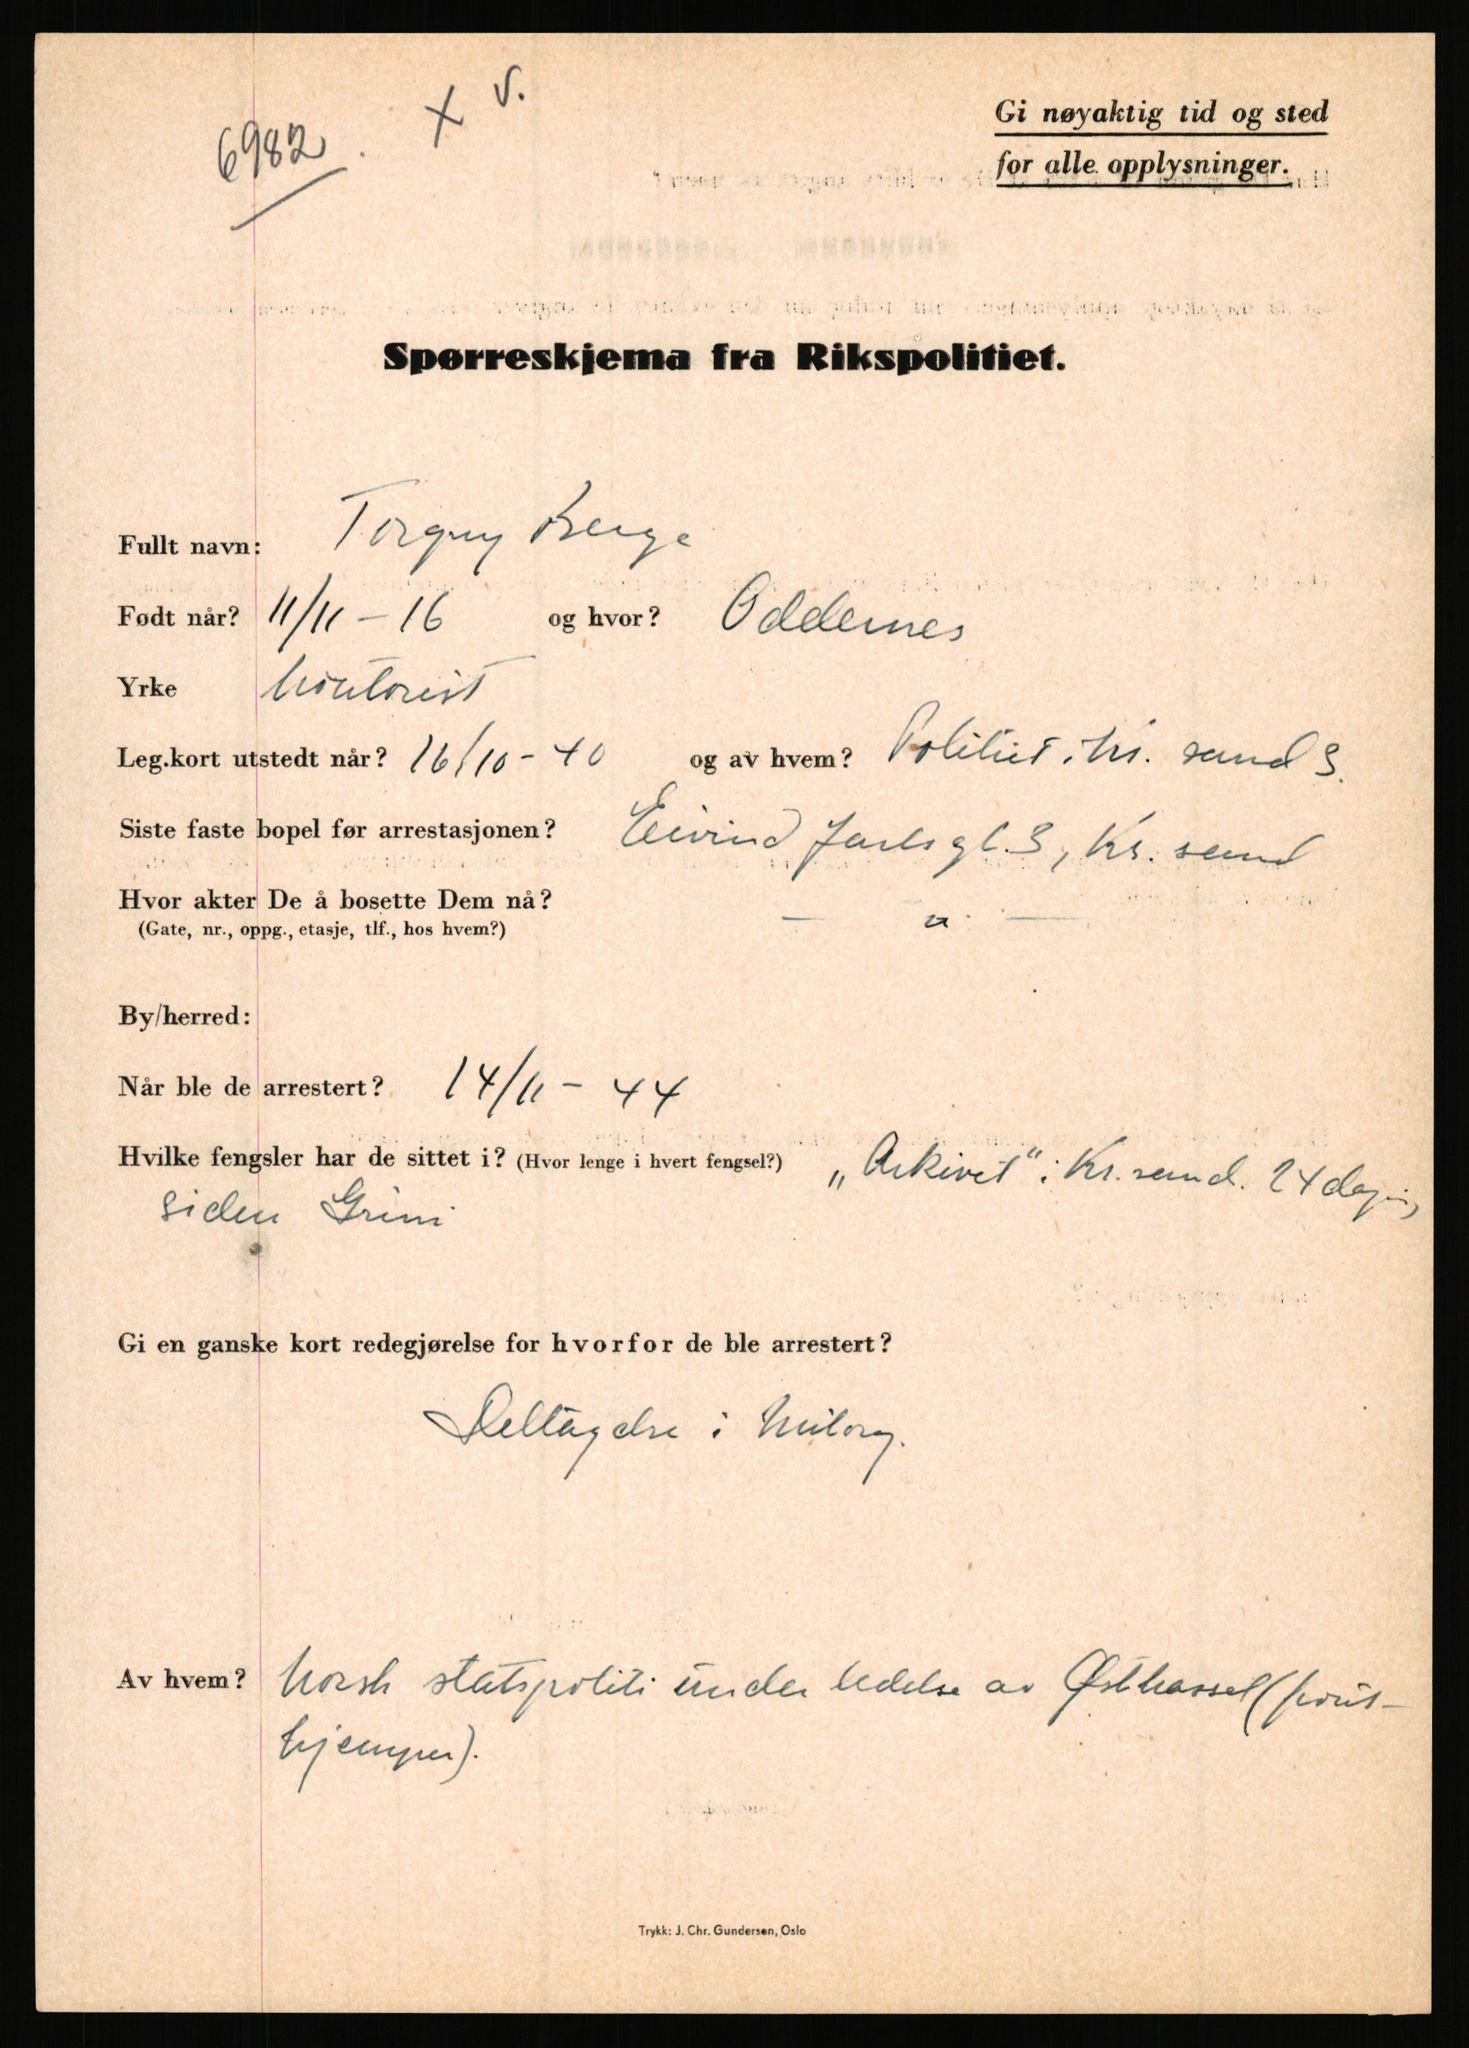 6982. x v.
Gi nøyaktig tid og sted
for alle opplysninger.
Spørreskjema fra Rikspolitiet.
Fullt navn: Torgny Berge
Født når? 11/11 - 16 og hvor? Oddernes
Yrke kontorist
Leg.kort utstedt når? 16/10 - 40 og av hvem? Politiet i Kr. sand S.
Siste faste bopel før arrestasjonen? Eivind Jarls gt. 3, Kr. sand
Hvor akter De å bosette Dem nå? — " —
(Gate, nr., oppg., etasje, tlf., hos hvem?)
By/herred:
Når ble de arrestert? 14/11 - 44
Hvilke fengsler har de sittet i? (Hvor lenge i hvert fengsel?) „Arkivet“ i Kr. sand. 24 dager,
siden Grini
Gi en ganske kort redegjørelse for hvorfor de ble arrestert?
Deltagelse i Milorg.
Av hvem? Norsk statspoliti under ledelse av Østhassel (front-
kjemper).
Trykk: J. Chr. Gundersen, Oslo